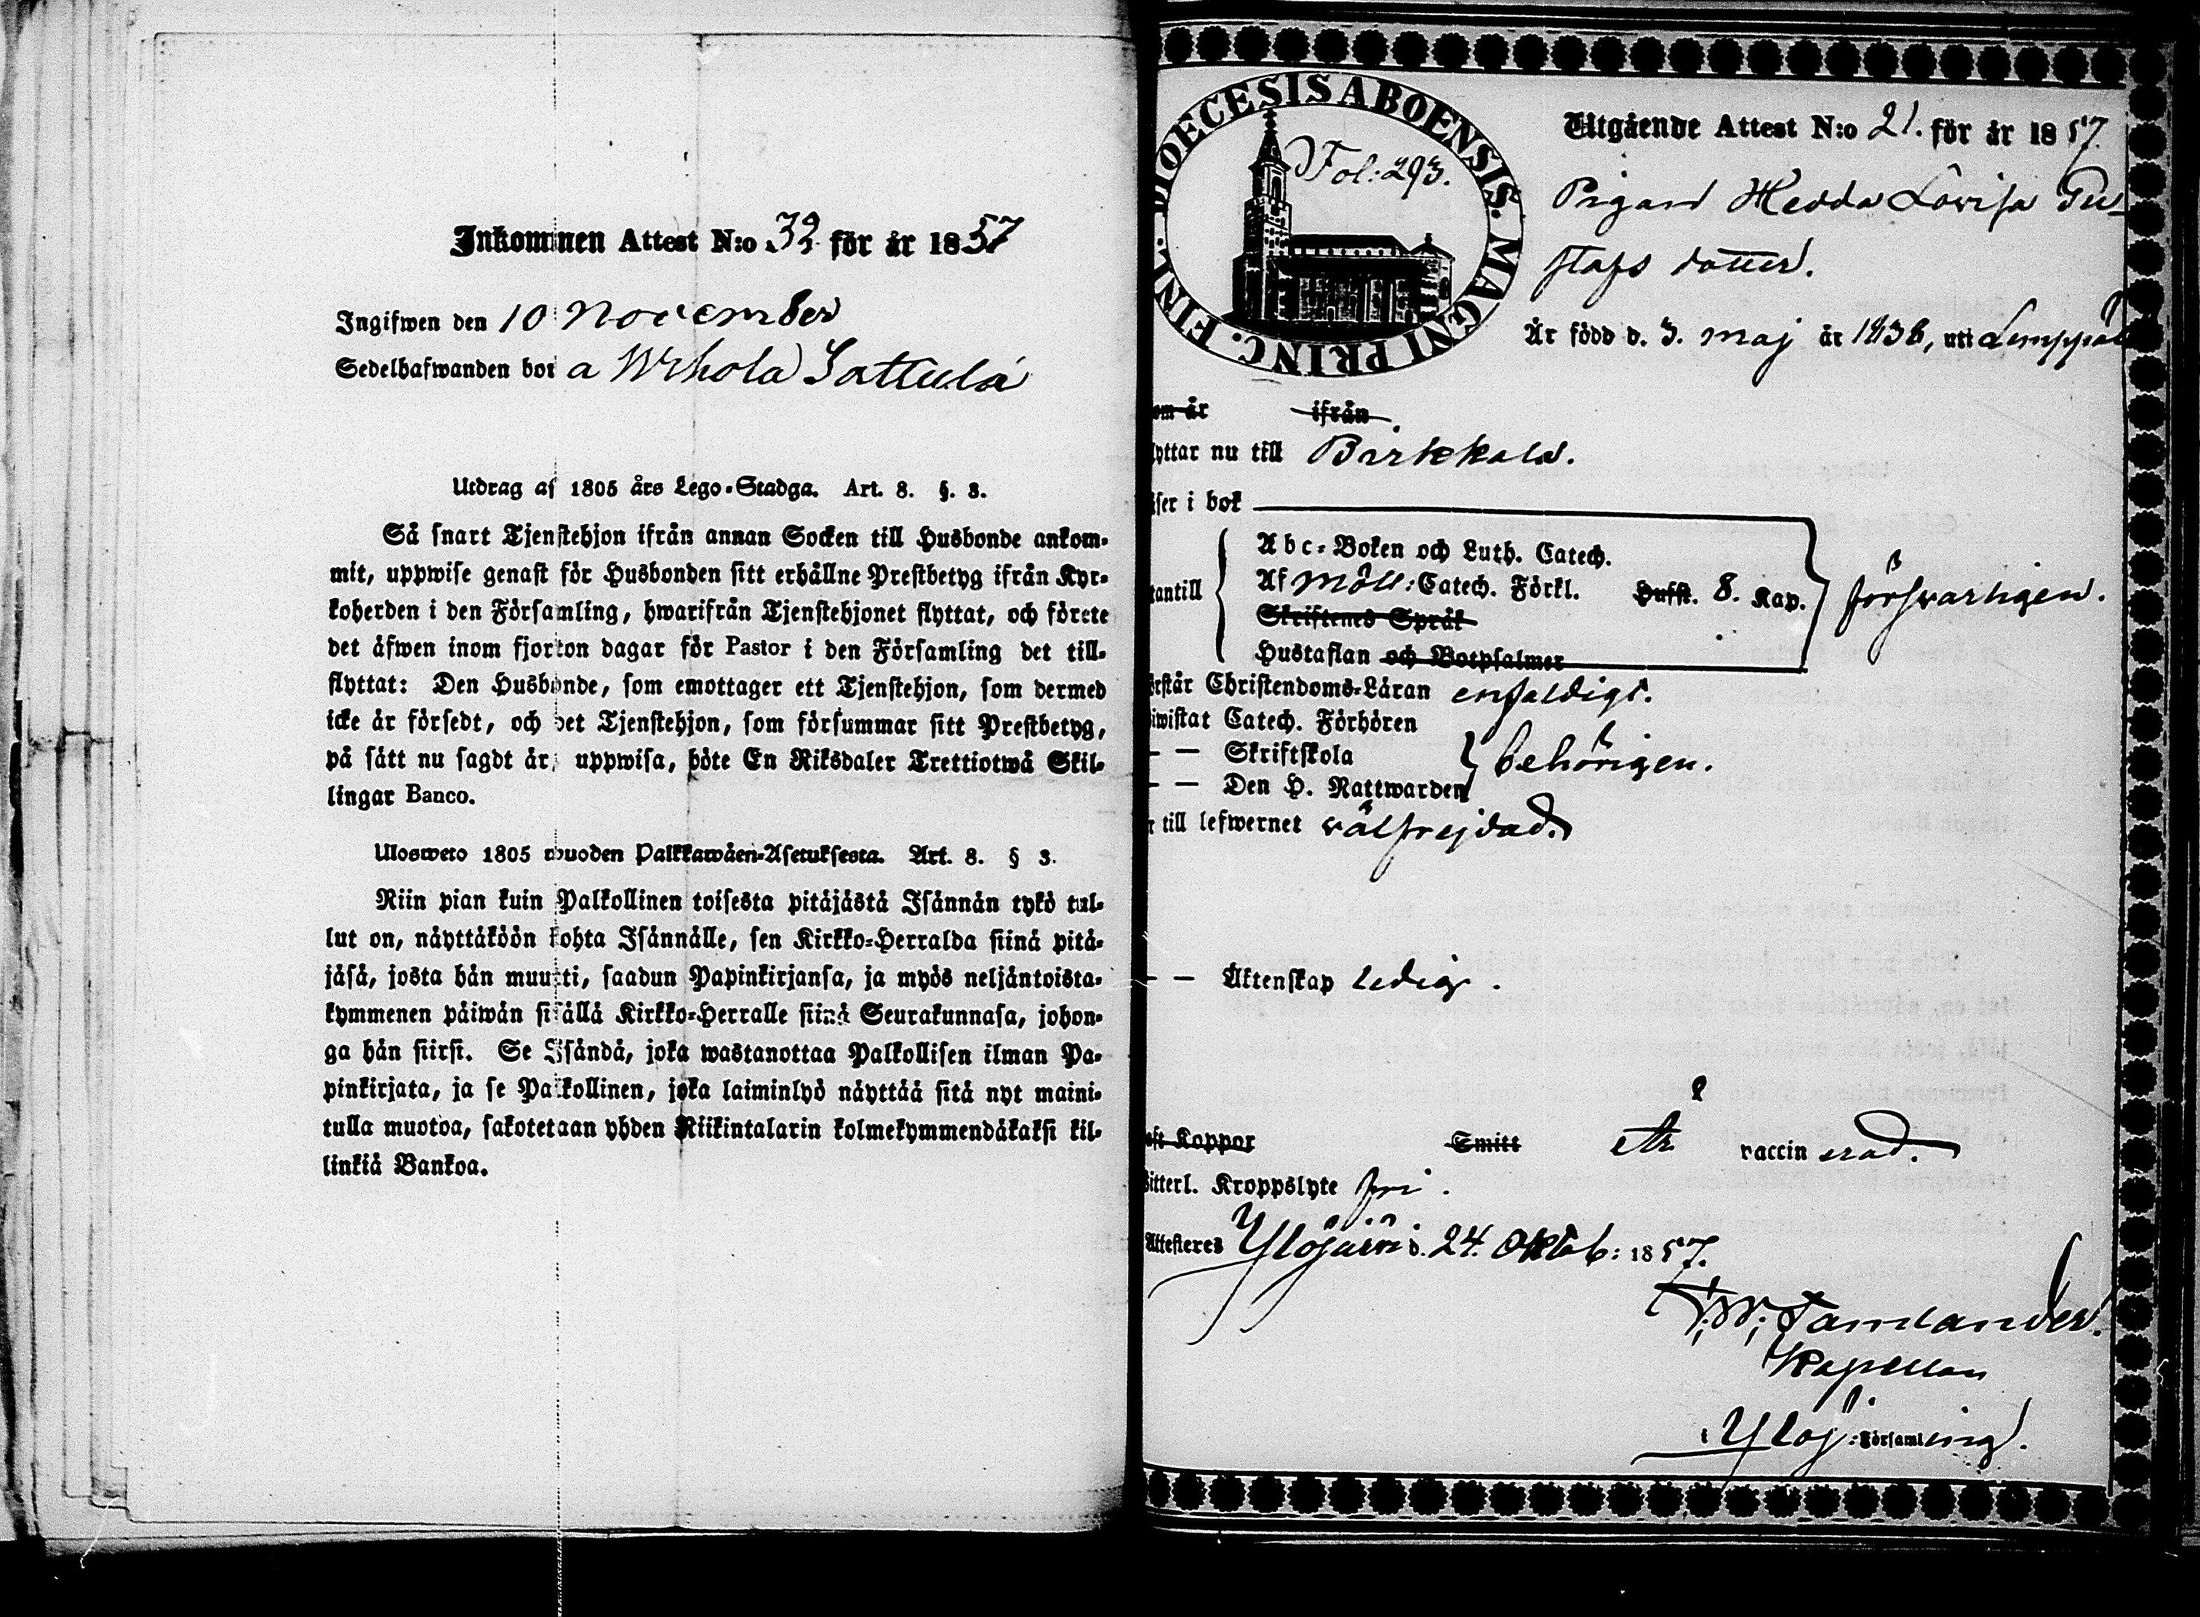 Inkommen Attest N:o 32. för år 1857
Ingifwen den 10 November
Sedelhafwanden bor a Wihola Sattula
Utdrag af 1805 års Lego-Stadga. Art. 8. §. 3.
Så snart Tjenstehjon ifrån annan Socken till Husbonde ankom-
mit, uppwise genast för Husbonden sitt erhållne Prestbetyg ifrån Kyr-
koherden i den Församling, hwarifrån Tjenstehjonet flyttat, och förete
det äfwen inom fjorton dagar för Pastor i den Församling det till-
flyttat: Den Husbonde, som emottager ett Tjenstehjon, som dermed
icke är försedt, och det Tjenstehjon, som försummar sitt Prestbetyg,
på sätt nu sagdt är, uppwisa, böte En Riksdaler Trettiotwå Skil-
lingar Banco.
Ulosweto 1805 wuoden Palkkawäen-Asetuksesta. Art. 8. § 3.
Niin pian kuin Palkollinen toisesta pitäjästä Isännän tykö tul-
lut on, näyttäköön kohta Isännälle, sen Kirkko-Herralda siinä pitä-
jäsä, josta hän muutti, saadun Papinkirjansa, ja myös neljäntoista-
kymmenen päiwän sisällä Kirkko-Herralle siinä Seurakunnasa, johon-
ga hän siirsi. Se Isändä, joka wastanottaa Palkollisen ilman Pa-
pinkirjata, ja se Palkollinen, joka laiminlyö näyttää sitä nyt maini-
tulla muotoa, sakotetaan yhden Riikintalarin kolmekymmendäkaksi kil-
linkiä Bankoa.
DIOECESIS ABOENSIS. MAGNI PRINC. FINL.
Fol: 293.
Utgående Attest N:o 21. för år 1857.
Pigan Hedda Lovisa Gu-
stafs dotter.
Är född d. 3. maj år 1836, uti Lemppää
om år ifrån
lyttar nu till Birkkala.
äser i bok
Abc-Boken och Luth. Catech.
Af Möll: Catech. Förkl. Husst. 8. Kap.
tantill försvarligen.
Skriftenes Språk
Hustaflan och Botpsalmer
örstår Christendoms-Läran enfaldigt.
iwistat Catech. Förhören
— — Skriftskola behörigen.
— — Den H. Nattwarden
r till lefwernet välfrejdad.
— — Äktenskap ledig.
aft Koppor Smitt är vaccinerad.
Sitterl. Kroppslyte fri.
Attesteres Ylöjärvi d. 24. Oktob: 1857.
Tamlander.
Kapellan
i Ylöj: Församling.